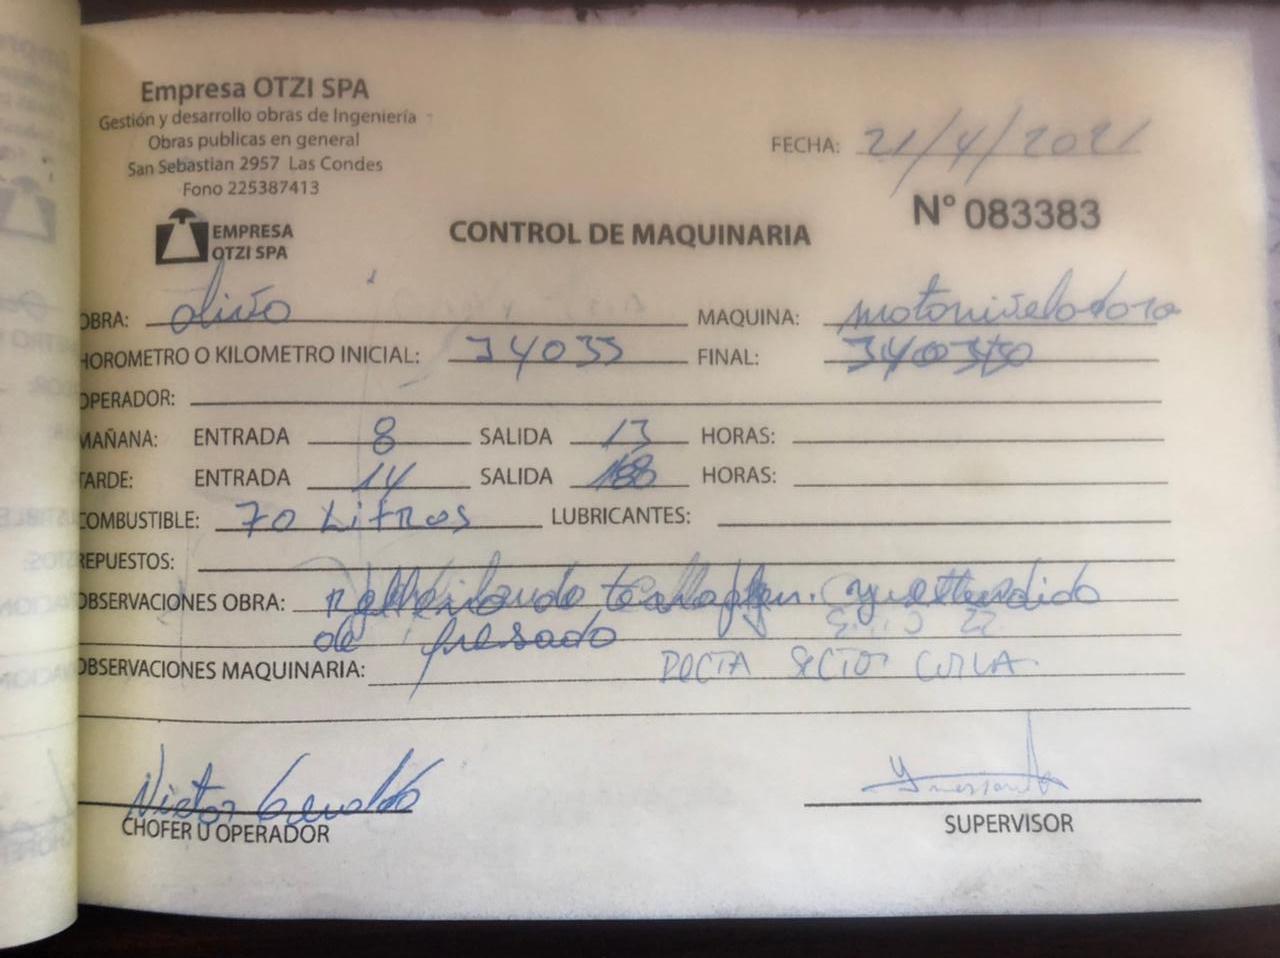 Empresa OTZI SPA
Gestión y desarrollo obras de Ingeniería
Obras publicas en general
San Sebastian 2957 Las Condes
Fono 225387413
FECHA: 21/4/2021
N° 083383
EMPRESA
OTZI SPA
CONTROL DE MAQUINARIA
OBRA: MAQUINA: motoniveladora
HOROMETRO O KILOMETRO INICIAL: 34035 FINAL:
OPERADOR:
MAÑANA: ENTRADA 8 SALIDA 13 HORAS:
TARDE: ENTRADA 14 SALIDA HORAS:
COMBUSTIBLE: 70 Litros LUBRICANTES:
REPUESTOS:
OBSERVACIONES OBRA:
de fresado
OBSERVACIONES MAQUINARIA:
CHOFER U OPERADOR
SUPERVISOR